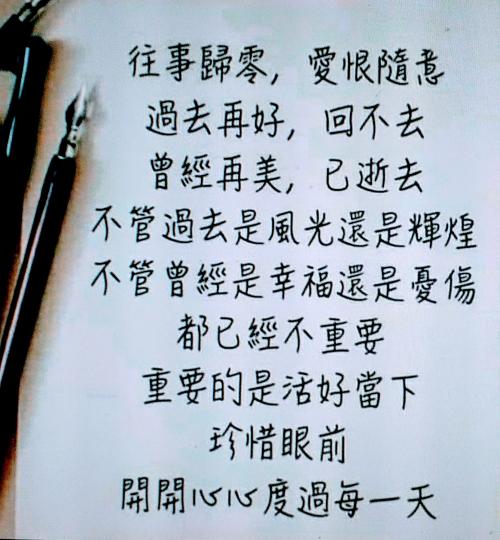 往事歸零，愛恨隨意
過去再好，回不去
曾經再美，已逝去
不管過去是風光還是輝煌
不管曾經是幸福還是憂傷
都已經不重要
重要的是活好當下
珍惜眼前
開開心心度過每一天